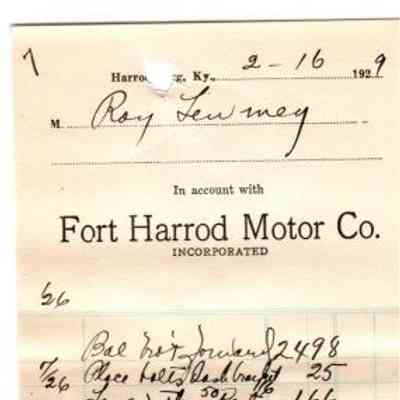 7
Harro rg, Ky., 2-16 1929
M. Roy
In account with
Fort Harrod Motor Co.
INCORPORATED
1/26
Bal Forward 2498
7/26 Place bolts 25
50 166